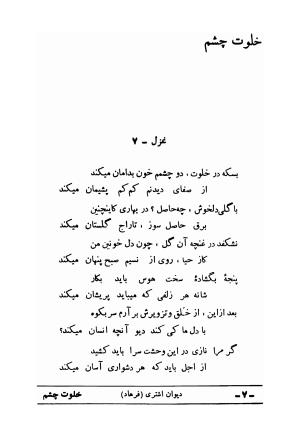 خلوت چشم
غزل - ۷
بسکه در خلوت ، دو چشمم خون بدامان میکند
از صفای دیدنم کم کم پشیمان میکند
با گلی دلخوش ، چه حاصل ؟ در بهاری کاینچنین
برق حاصل سوز ، تاراج گلستان میکند
نشکفد در غنچه آن گل ، چون دل خونین من
کاز حیا ، روی از نسیم صبح پنهان میکند
پنجهٔ بگشادهٔ سخت هوس باید بکار
شانه هر زلفی که میباید پریشان میکند
بعد از این ، از خلق و تزویرش بر آرم سر بکوه
با دل ما کی کند دیو آنچه انسان میکند؟
گر مرا نازی در این وحشت سرا باید کشید
از اجل باید که هر دشواری آسان میکند
- ۷ -
دیوان اشتری (فرهاد)
خلوت چشم